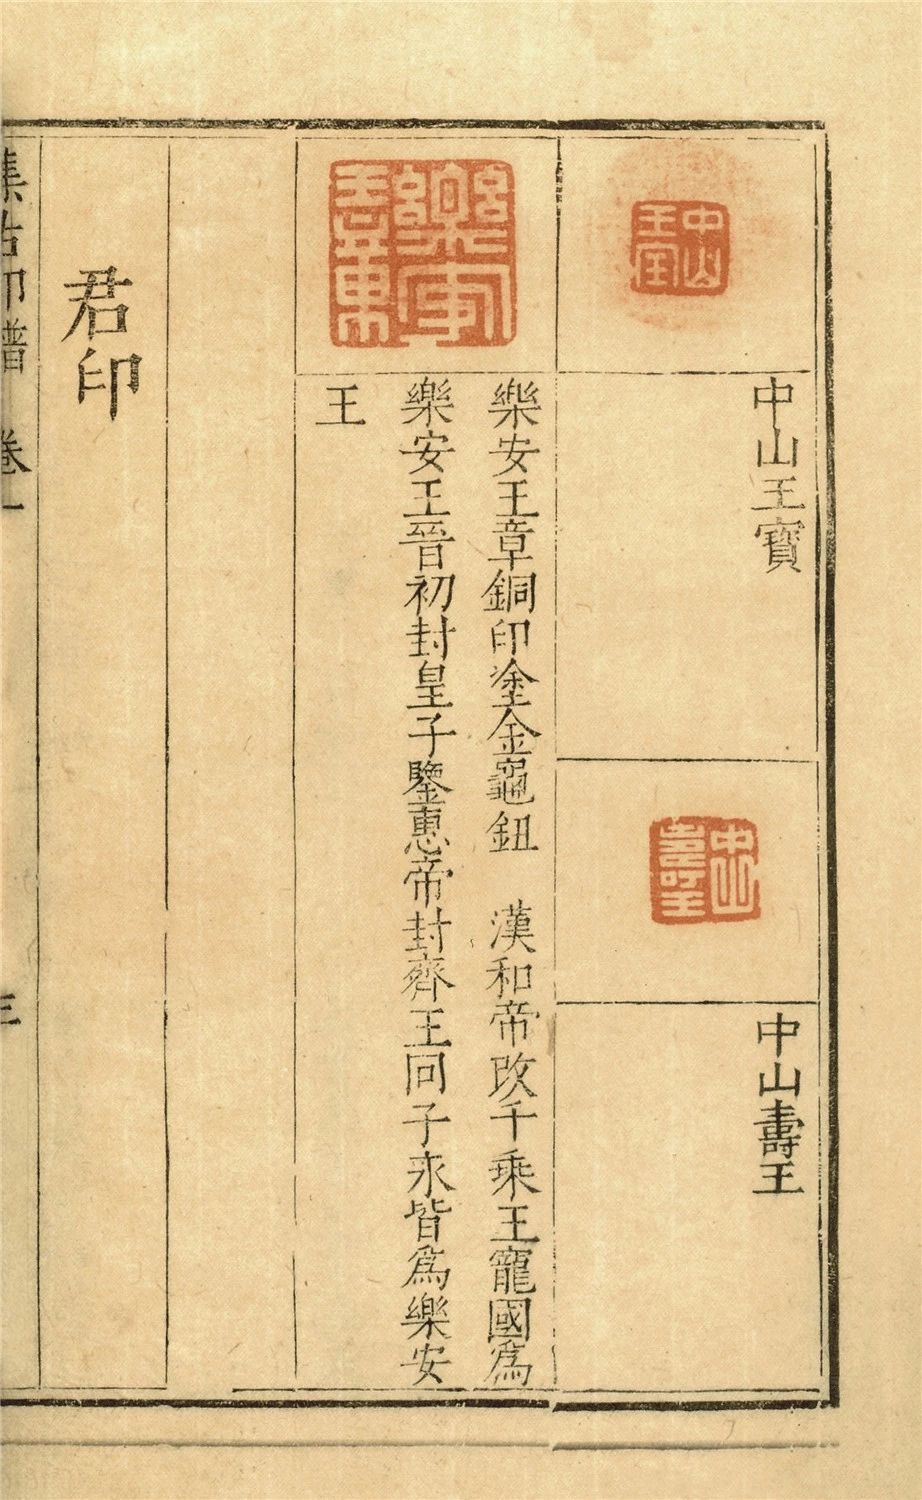 中山王寶
中山壽王
樂安王章銅印塗金龜鈕　漢和帝改千乘王寵國爲
樂安王晉初封皇子鑒惠帝封齊王冏子氶皆爲樂安
王
君印
集古印譜　卷一
三